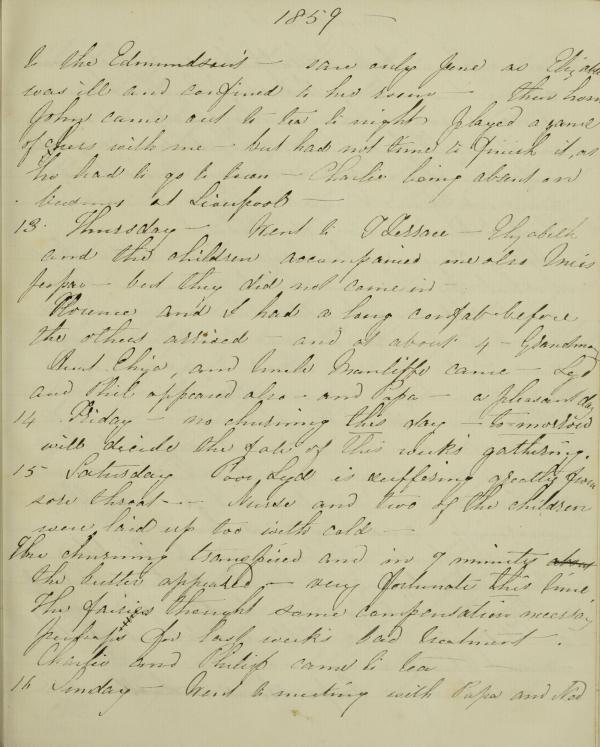 1859 —
to the Edmundson's — saw only Jane as Elizabeth
was ill and confined to her room — then home
John came out to tea to night played a game
of chess with me — but had not time to finish it, as
he had to go to town — Charlie being absent on
business at Liverpool —
13 Thursday — Went to Terrace — Elizabeth
and the children accompanied me also Miss
— but they did not come in —
Florence and I had a long confab before
the others arrived — and at about 4 — Grandma
Aunt Eliza, and Uncle Wancliffe came — Lyd
and Phil appeared also — and Papa — a pleasant day
14 Friday — no churning this day — to-morrow
will decide the fate of this week's gathering.
15 Saturday Poor Lyd is suffering greatly from
sore throat — Nurse and two of the children
were laid up too with colds —
The churning transpired and in 7 minutes
the butter appeared — very fortunate this time.
The fairies thought some compensation necessary
perhaps for last week's bad treatment.
Charlie and Philip came to tea
16 Sunday — Went to meeting with Papa and Ned